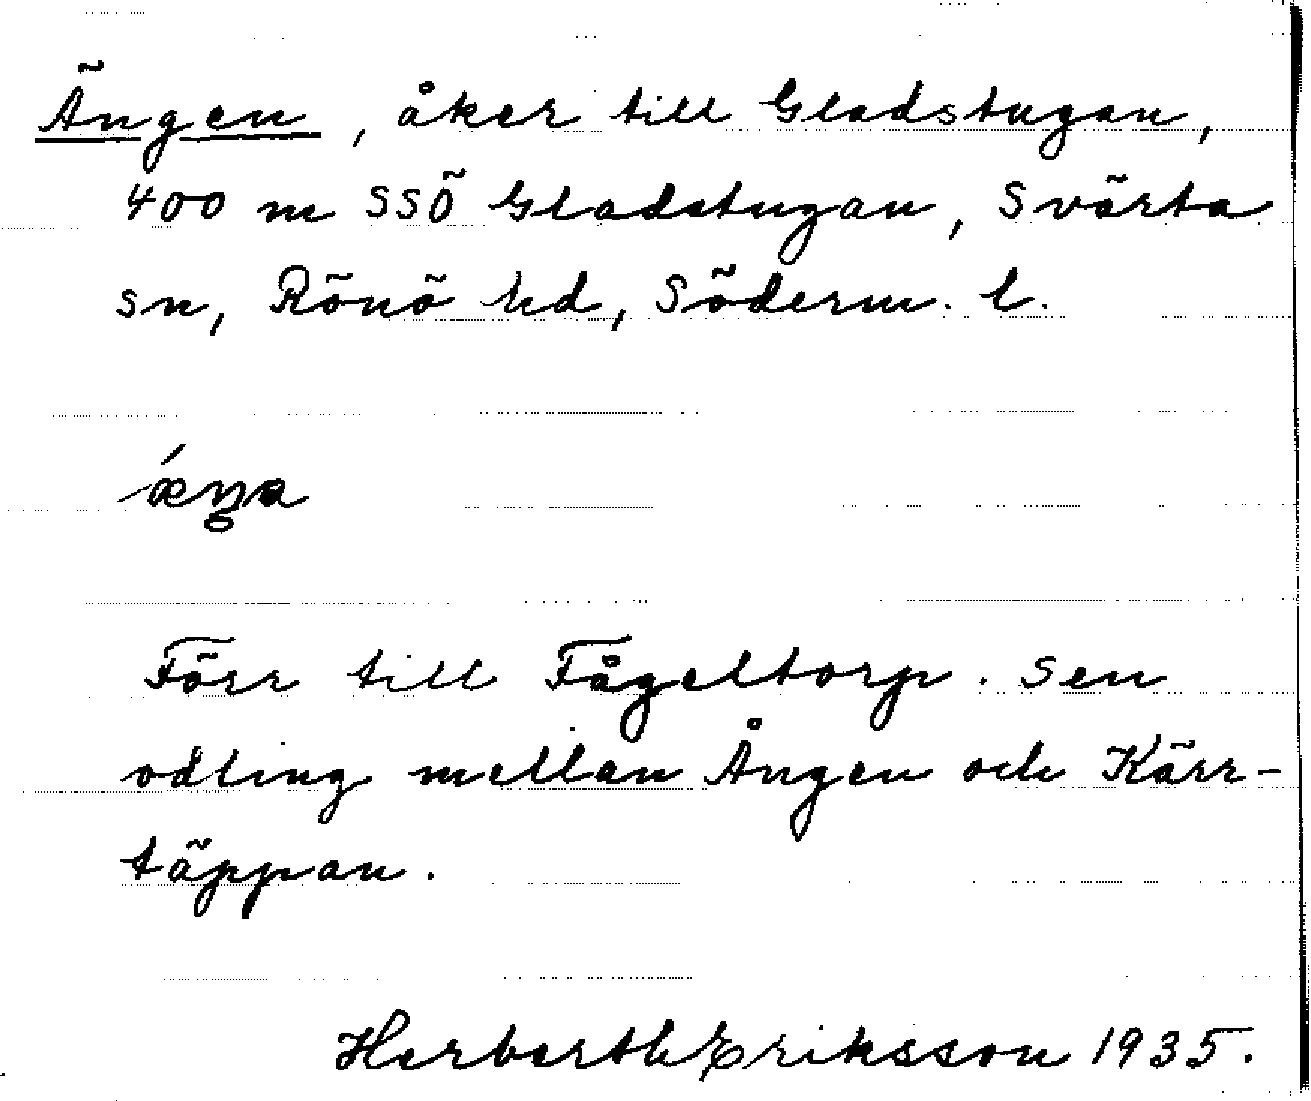 Ängen, åker till Gladstugan,
400 m SSÖ Gladstugan, Svärta
sn, Rönö hd, Söderm. l.
Förr till Fågeltorp. Sen
odling mellan Ången och Kärr-
täppan.
Herberth Eriksson 1935.